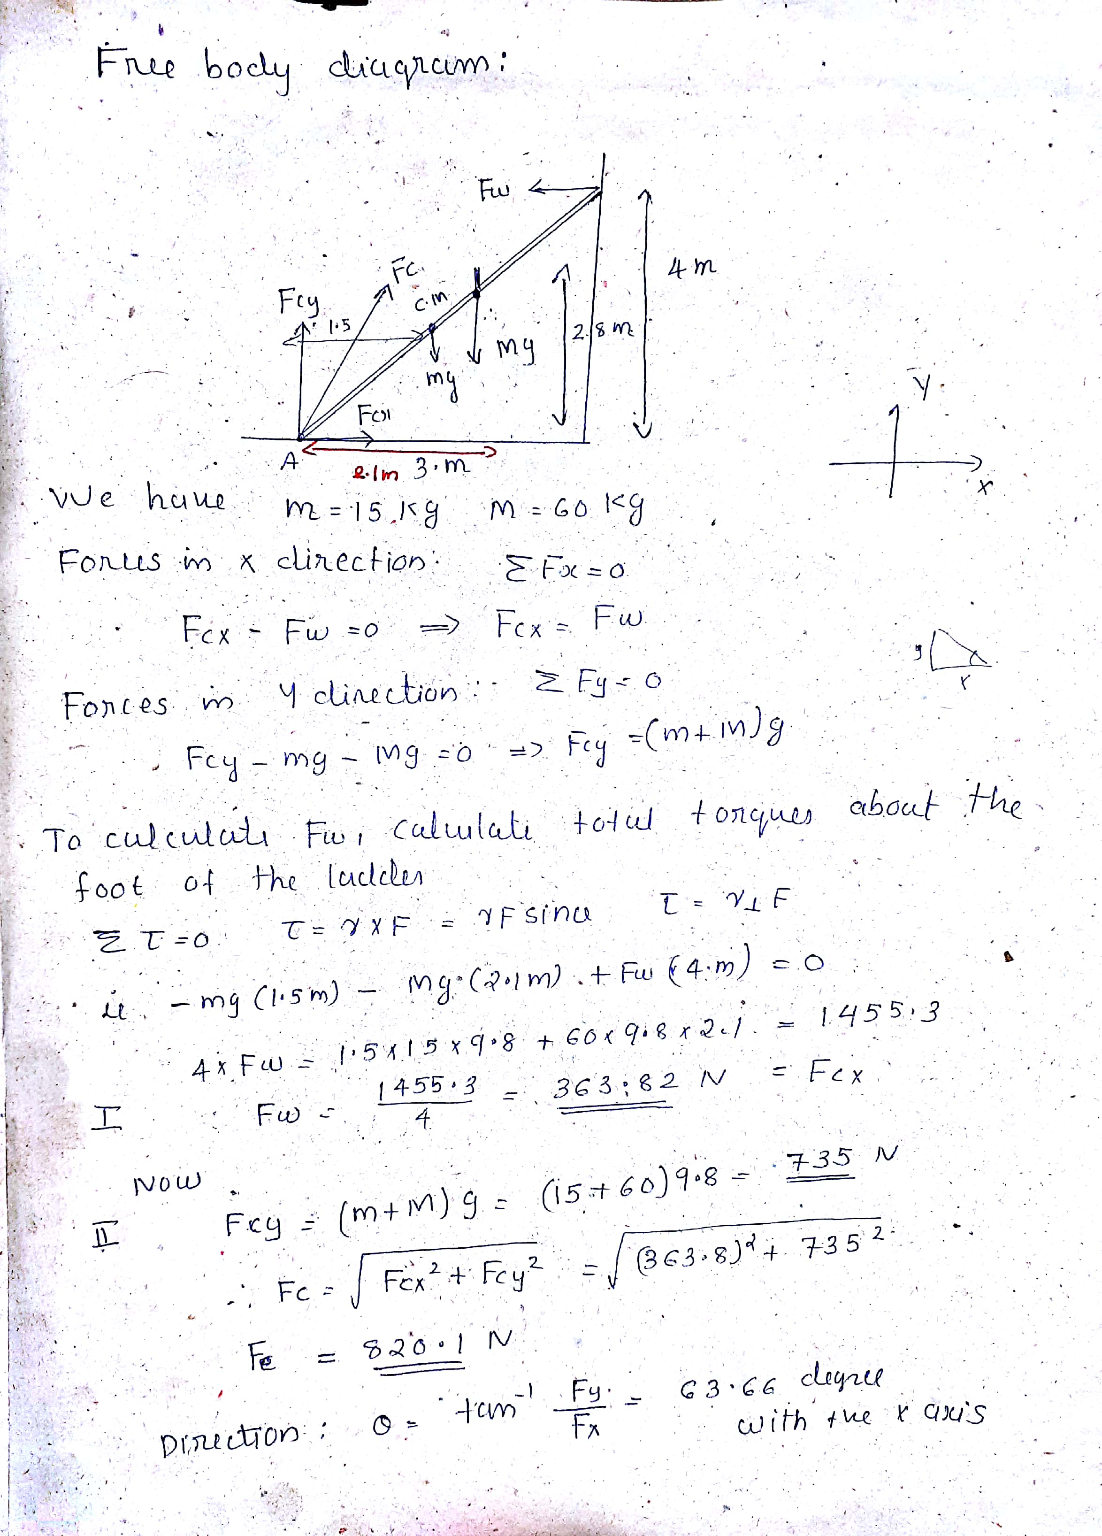 Free body diagram:
Fw
4 m
Fc
Fcy
c.m
1.5
2.8 m
mg
mg
Fcx
y
A
2.1m 3.m
x
We have m = 15 kg M = 60 kg
Forces in x direction. Σ Fx = 0
Fcx - Fw = 0 ⇒ Fcx = Fw
y
x
Forces in y direction: Σ Fy = 0
Fcy - mg - Mg = 0 => Fcy = (m + M)g
To calculate Fw, calculate total torques about the
foot of the ladder
Σ τ = 0. τ = r x F = rF sinθ τ = r⊥F
ie. - mg (1.5m) - Mg.(2.1m) + Fw (4.m) = 0
4x Fw = 1.5 x 15 x 9.8 + 60 x 9.8 x 2.1 = 1455.3
I Fw = 1455.3 / 4 = 363.82 N = Fcx
Now
II Fcy = (m+M) g = (15+60) 9.8 = 735 N
∴ Fc = √ Fcx² + Fcy² = √ (363.8)² + 735²
Fc = 820.1 N
Direction: θ = tan⁻¹ Fy / Fx = 63.66 degree
with the x axis